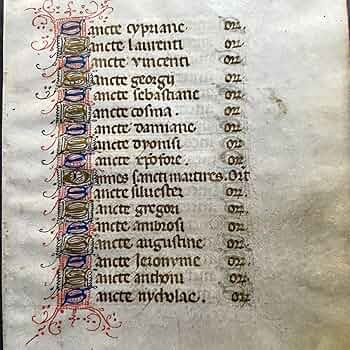 Sancte cypriane. or.
Sancte laurenti or.
Sancte vincenti or.
Sancte georgii or.
Sancte sebastiane or.
Sancte cosma. or.
Sancte damiane. or.
Sancte dyonisi or.
Sancte xpofore. or.
Omnes sancti martires. Ort
Sancte silvester or.
Sancte gregori or.
Sancte ambrosi or.
Sancte augustine or.
Sancte Jeronyme or.
Sancte anthoni or.
Sancte nycholae. or.